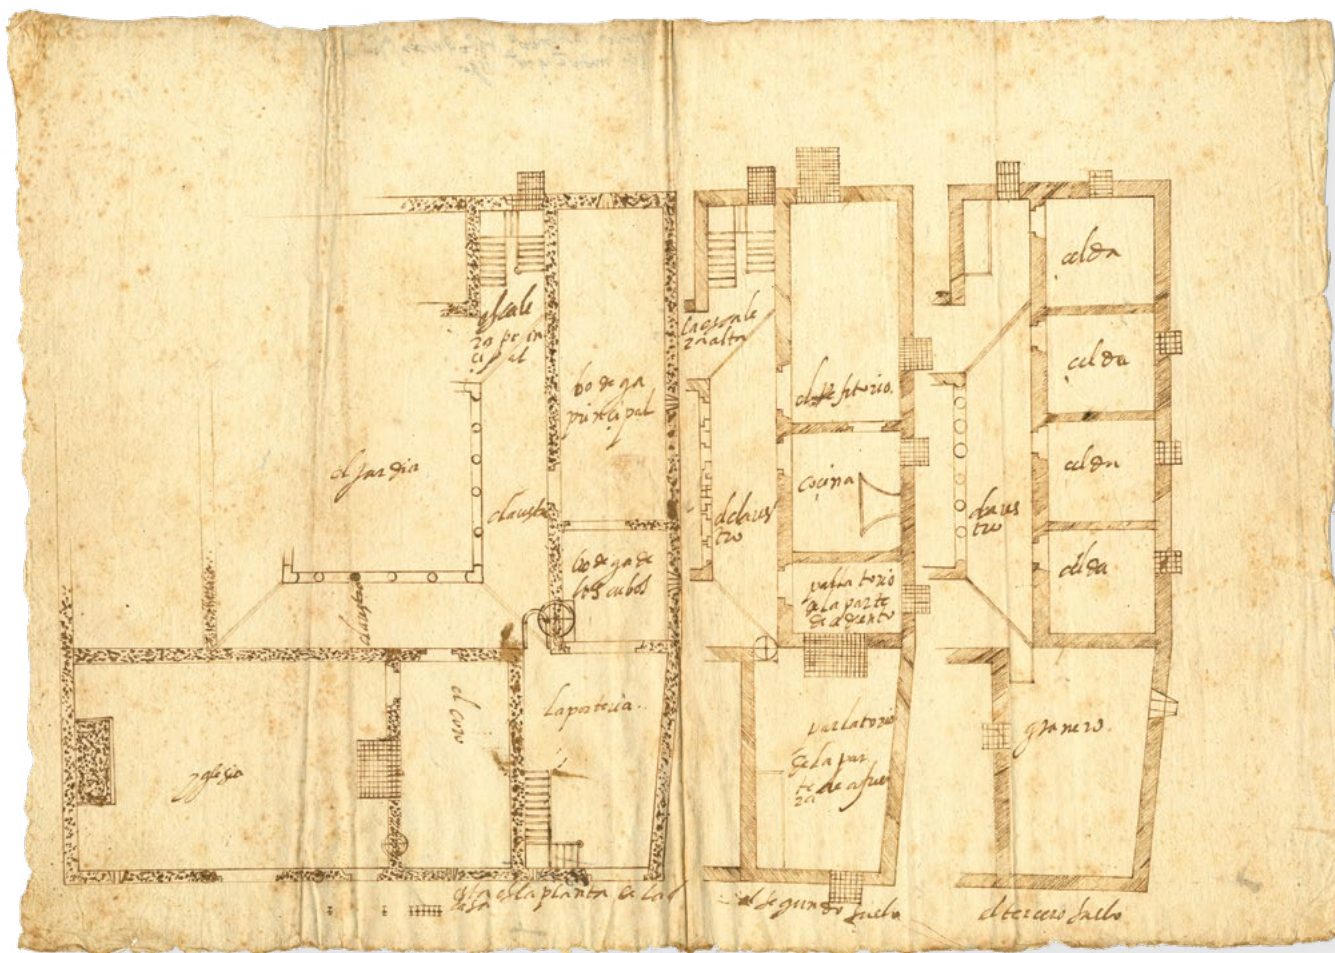 escale
ra prin
cipal
bodega
principal
el jardin
claustro
bodega de
los cubos
claustro
el coro
la porteria.
yglesia
esta es la planta de la
casa
la escale
ra alta
el refitorio.
cocina
el claus
tro
parlatorio
de la parte
de adentro
parlatorio
de la par
te de afue
ra
el segundo suelo
celda
celda
celda
celda
claus
tro
granero.
el tercero suelo